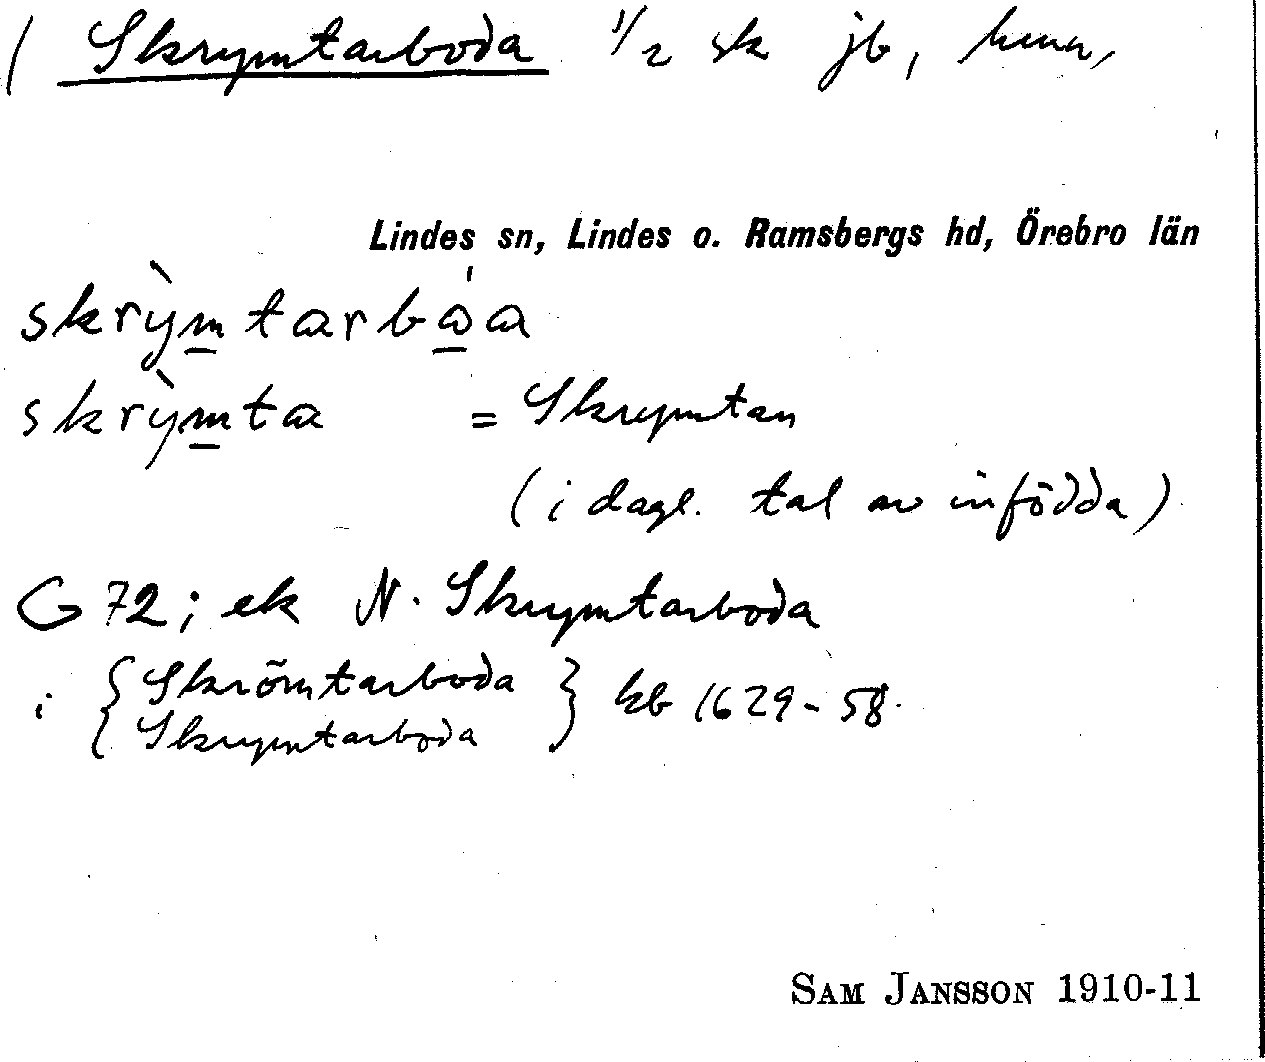 ( Skrymtarboda 1/2 sk jb, hmn,
Lindes sn, Lindes o. Ramsbergs hd, Örebro län
skrỳm̲tarbώ̲a
skrỳm̲ta = Skrymtan
(i dagl. tal av infödda)
G 72; ek N. Skrymtarboda
i { Skrömtarboda } kb 1629-58.
Skrymtarboda
SAM JANSSON 1910-11